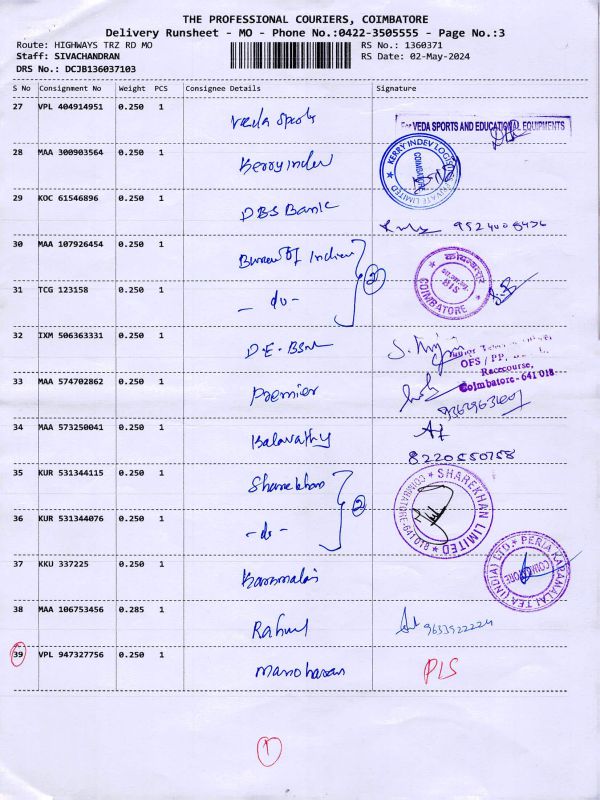 THE PROFESSIONAL COURIERS, COIMBATORE
Delivery Runsheet - MO - Phone No.:0422-3505555 - Page No.:3
Route: HIGHWAYS TRZ RD MO RS No.: 1360371
Staff: SIVACHANDRAN RS Date: 02-May-2024
DRS No.: DCJB136037103
S No Consignment No Weight PCS Consignee Details Signature
27 VPL 404914951 0.250 1 Veda Sports
For VEDA SPORTS AND EDUCATIONAL EQUIPMENTS
28 MAA 300903564 0.250 1 Kerry indev
KERRY INDEV LOGISTICS PRIVATE LIMITED
COIMBATORE
29 KOC 61546896 0.250 1 DBS Bank
30 MAA 107926454 0.250 1 Bureau of Indian
2
कोयम्बत्तूर
BIS
COIMBATORE
31 TCG 123158 0.250 1 - do -
32 IXM 506363331 0.250 1 D.E. BSNL
OFS / PP,
Racecourse,
Coimbatore - 641 018
33 MAA 574702862 0.250 1 Premier
34 MAA 573250041 0.250 1 Kalavathy
8220550758
35 KUR 531344115 0.250 1 Sharekhan
2
SHAREKHAN LIMITED
COIMBATORE-641018
36 KUR 531344076 0.250 1 - do -
37 KKU 337225 0.250 1 Karamalai
PERIA KARAMALAI TEA (INDIA) LTD.
COIMBATORE
38 MAA 106753456 0.285 1 Rahul
9633922224
39 VPL 947327756 0.250 1 Manoharan PLS
1